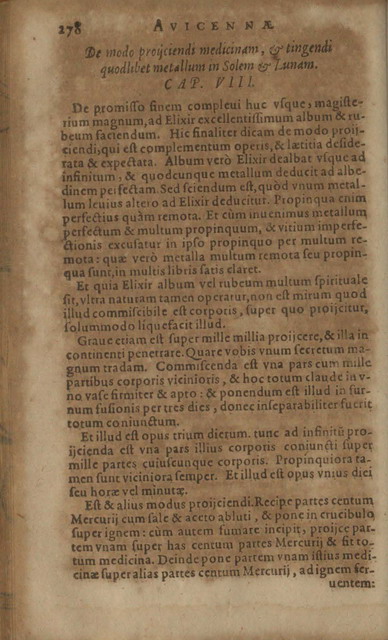 278 AVICENNÆ
De modo proijciendi medicinam, & tingendi
quodlibet metallum in Solem & Lunam.
CAP. VIII.
De promisso finem compleui huc vsque, magiste-
rium magnum, ad Elixir excellentissimum album & ru-
beum faciendum. Hic finaliter dicam de modo proij-
ciendi, qui est complementum operis, & lætitia deside-
rata & expectata. Album verò Elixir dealbat vsque ad
infinitum, & quodcunque metallum deducit ad albe-
dinem perfectam. Sed sciendum est, quòd vnum metal-
lum leuius altero ad Elixir deducitur. Propinqua enim
perfectius quàm remota. Et cùm inuenimus metallum
perfectum & multum propinquum, & vitium imperfe-
ctionis excusatur in ipso propinquo per multum re-
mota: quæ verò metalla multum remota seu propin-
qua sunt, in multis libris satis claret.
Et quia Elixir album vel rubeum multum spirituale
sit, vltra naturam tamen operatur, non est mirum quod
illud commiscibile est corporis, super quo proijcitur,
solummodo liquefacit illud.
Graue etiam est super mille millia proijcere, & illa in
continenti penetrare. Quare vobis vnum secretum ma-
gnum tradam. Commiscenda est vna pars cum mille
partibus corporis vicinioris, & hoc totum claude in v-
no vase firmiter & apto: & ponendum est illud in fur-
num fusionis per tres dies, donec inseparabiliter fuerit
totum coniunctum.
Et illud est opus trium dierum. tunc ad infinitū pro-
ijcienda est vna pars illius corporis coniuncti super
mille partes cuiuscunque corporis. Propinquiora ta-
men sunt viciniora semper. Et illud est opus vnius diei
seu horæ vel minutæ.
Est & alius modus proijciendi. Recipe partes centum
Mercurij cum sale & aceto abluti, & pone in crucibulo
super ignem: cùm autem fumare incipit, proijce par-
tem vnam super has centum partes Mercurij & fit to-
tum medicina. Deinde pone partem vnam istius medi-
cinæ super alias partes centum Mercurij, ad ignem fer-
uentem: